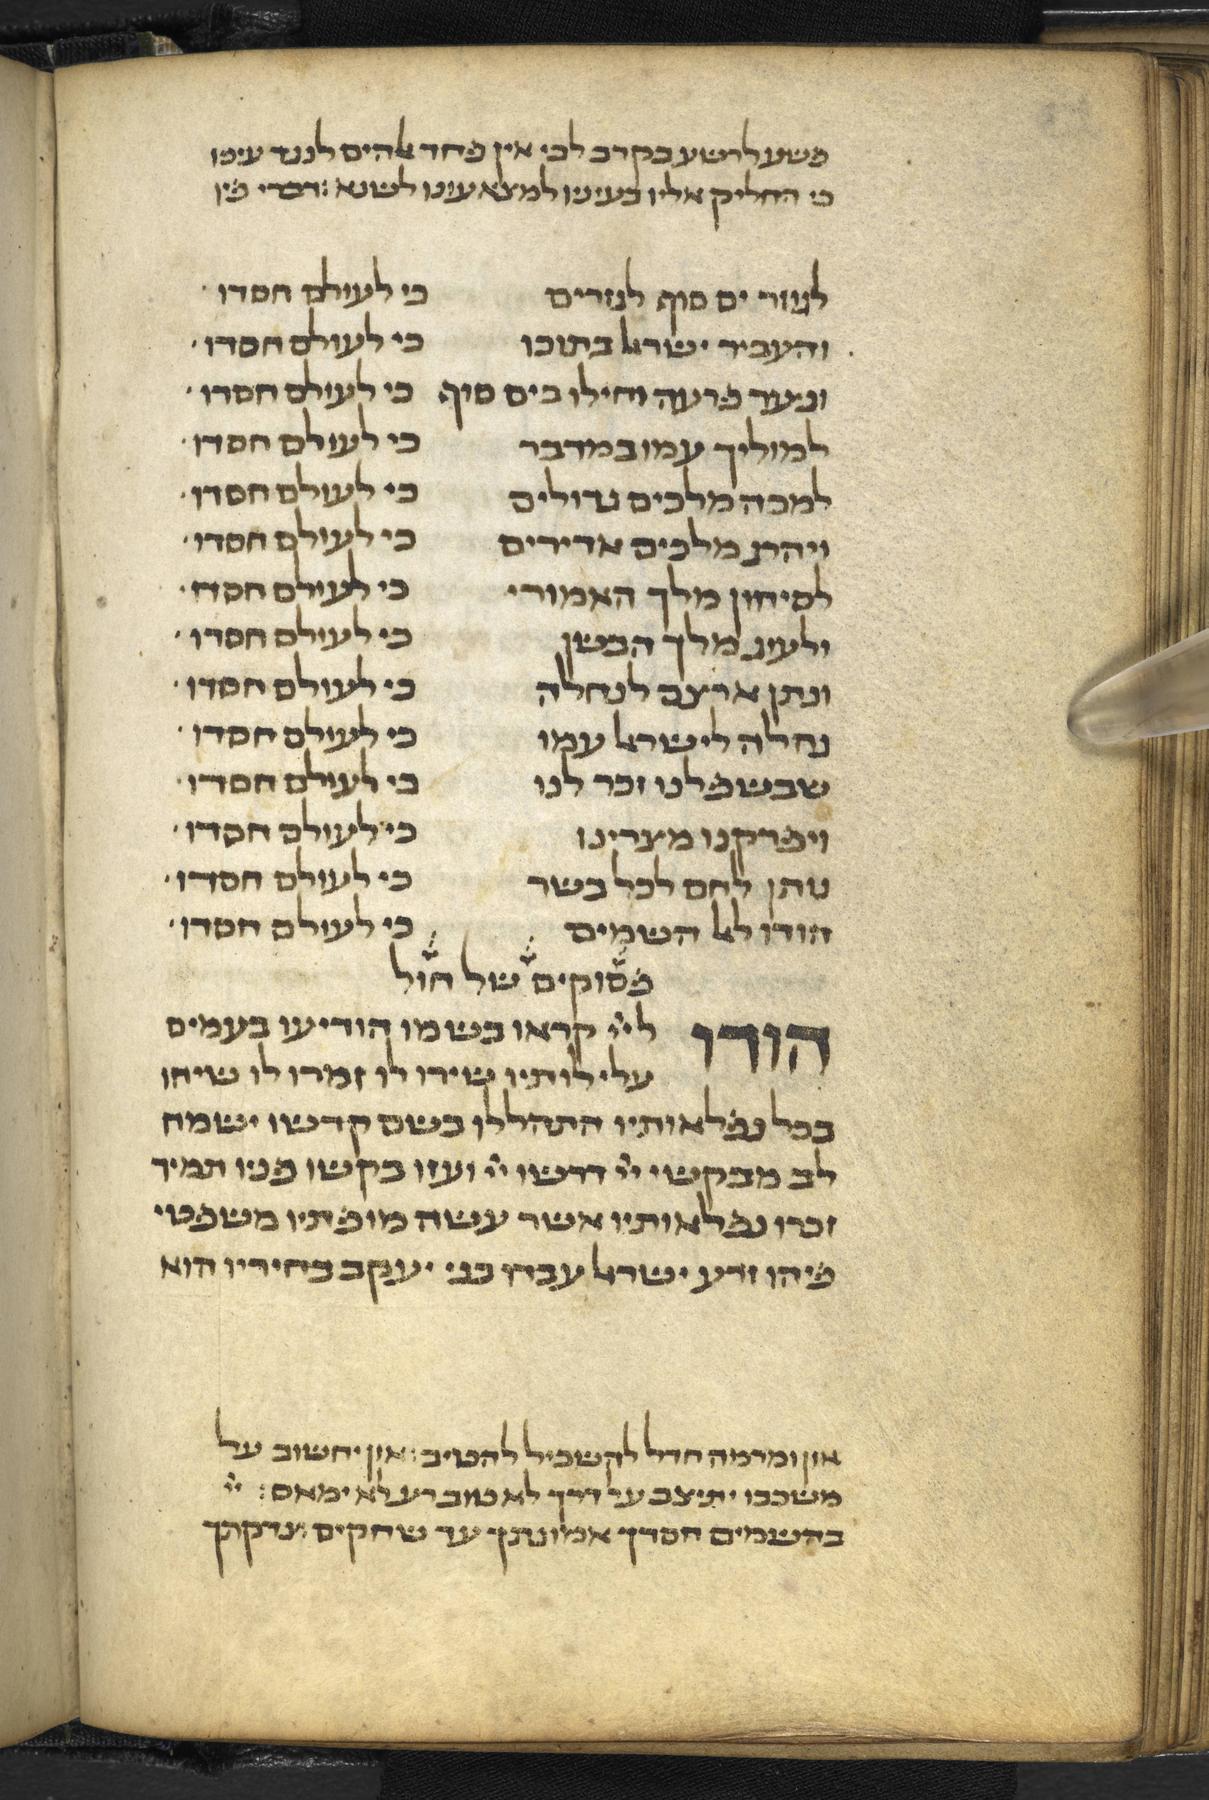 פשע לרשע בקרב לבי אין פחד אלהים לנגד עיניו
כי החליק אליו בעיניו למצא עונו לשנא : דברי פיו
לגוזר ים סוף לגזרים כי לעולם חסדו ·
והעביר ישראל בתוכו כי לעולם חסדו ·
ונער פרעה וחילו בים סוף כי לעולם חסדו ·
למוליך עמו במדבר כי לעולם חסדו ·
למכה מלכים גדולים כי לעולם חסדו ·
ויהרג מלכים אדירים כי לעולם חסדו ·
לסיחון מלך האמורי כי לעולם חסדו ·
ולעוג מלך הבשן כי לעולם חסדו ·
ונתן ארצם לנחלה כי לעולם חסדו ·
נחלה לישראל עמו כי לעולם חסדו ·
שבשפלנו זכר לנו כי לעולם חסדו ·
ויפרקנו מצרינו כי לעולם חסדו ·
נותן לחם לכל בשר כי לעולם חסדו ·
הודו לאל השמים כי לעולם חסדו ·
פסוקים של חול
הודו לייי קראו בשמו הודיעו בעמים
עלילותיו שירו לו זמרו לו שיחו
בכל נפלאותיו התהללו בשם קדשו ישמח
לב מבקשי ייי דרשו ייי ועזו בקשו פניו תמיד
זכרו נפלאותיו אשר עשה מופתיו משפטי
פיהו זרע ישראל עבדו בני יעקב בחיריו הוא
און ומרמה חדל להשכיל להטיב : און יחשוב על
משכבו יתיצב על דרך לא טוב רע לא ימאס : ייי
בהשמים חסדך אמונתך עד שחקים : צדקתך